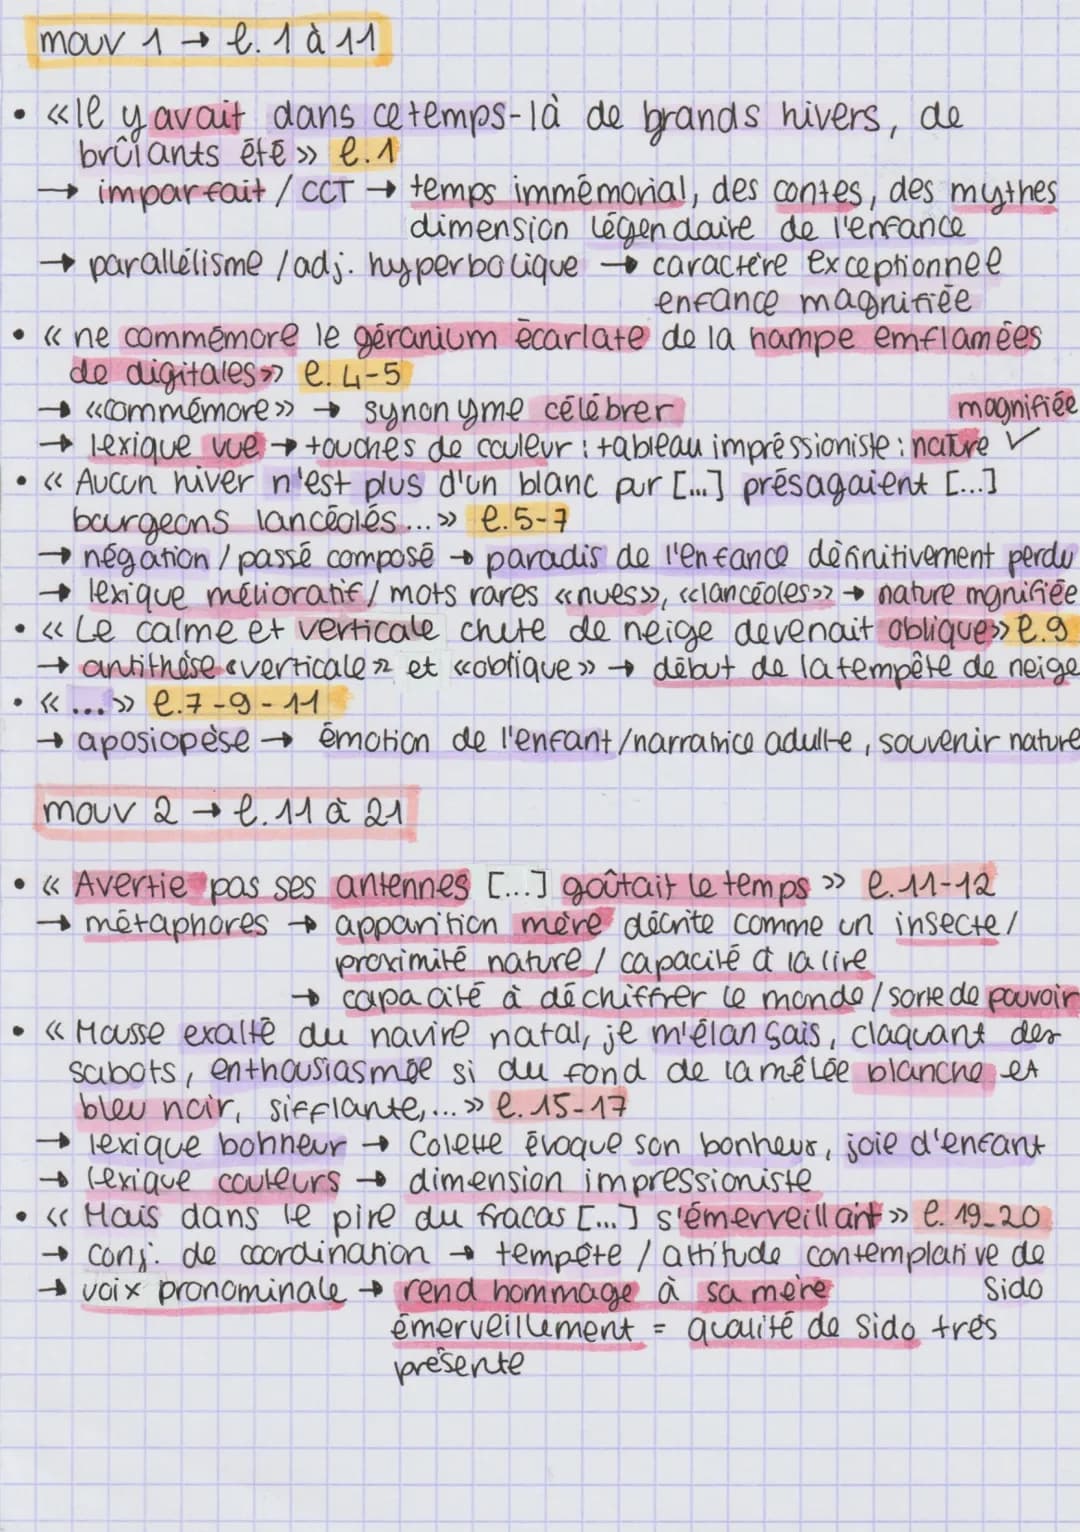 mouv 1 → l. 1 à 11
• «Il y avait dans ce temps-là de grands hivers, de
brûlants été» l.1
→ imparfait / CCT → temps immémorial, des contes, des mythes
dimension légendaire de l'enfance
→ parallélisme / adj. hyperbolique → caractère exceptionnel
enfance magnifiée
• « ne commémore le géranium écarlate de la hampe emflamées
de digitales» l. 4-5
→ «commémore» → synonyme célébrer magnifiée
→ lexique vue → touches de couleur : tableau impréssioniste : nature ✓
• « Aucun hiver n'est plus d'un blanc pur [...] présagaient [...]
bourgeons lancéolés...» l.5-7
→ négation / passé composé → paradis de l'enfance définitivement perdu
→ lexique mélioratif / mots rares «nues», «lancéoles» → nature mgnifiée
• « Le calme et verticale chute de neige devenait oblique» l.9
→ antithèse «verticale» et «oblique» → début de la tempête de neige
• « ...» l.7-9-11
→ aposiopèse → émotion de l'enfant/narratrice adulte, souvenir nature
mouv 2 → l. 11 à 21
• « Avertie pas ses antennes [...] goûtait le temps » l.11-12
→ métaphores → apparition mère décrite comme un insecte /
proximité nature / capacité à la lire
→ capacité à déchiffrer le monde / sorte de pouvoir
• « Mousse exalté du navire natal, je m'élançais, claquant des
sabots, enthousiasmée si du fond de la mêlée blanche et
bleu noir, sifflante,...» l. 15-17
→ lexique bonheur → Colette évoque son bonheur, joie d'enfant
→ lexique couleurs → dimension impressioniste
• « Mais dans le pire du fracas [...] s'émerveillait » l. 19-20
→ conj. de coordination → tempête / attitude contemplative de
Sido
→ voix pronominale → rend hommage à sa mère
émerveillement = qualité de Sido très
présente